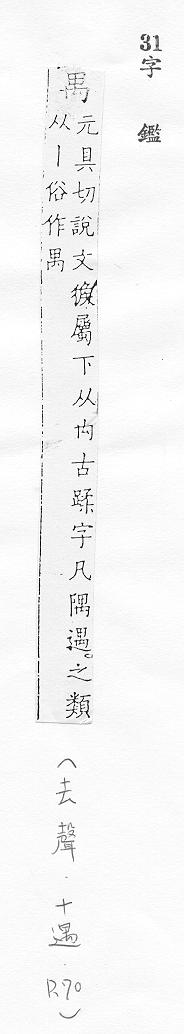 31字鑑
禺元具切說文㺅屬下从禸古蹂字凡隅遇之類
从丨俗作禺
(去聲.十遇.P.70)